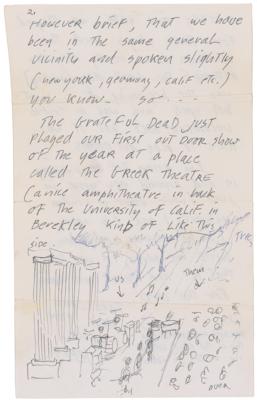 2.
However brief, that we have
been in the same general
vicinity and spoken slightly
(new york, germany, calif etc.)
you know - so - - - -
The Grateful Dead just
played our first out door show
of the year at a place
called the Greek Theatre
(a nice amphitheatre in back
of the University of Calif. in
Berekley kind of like this
Trees
side
us
them